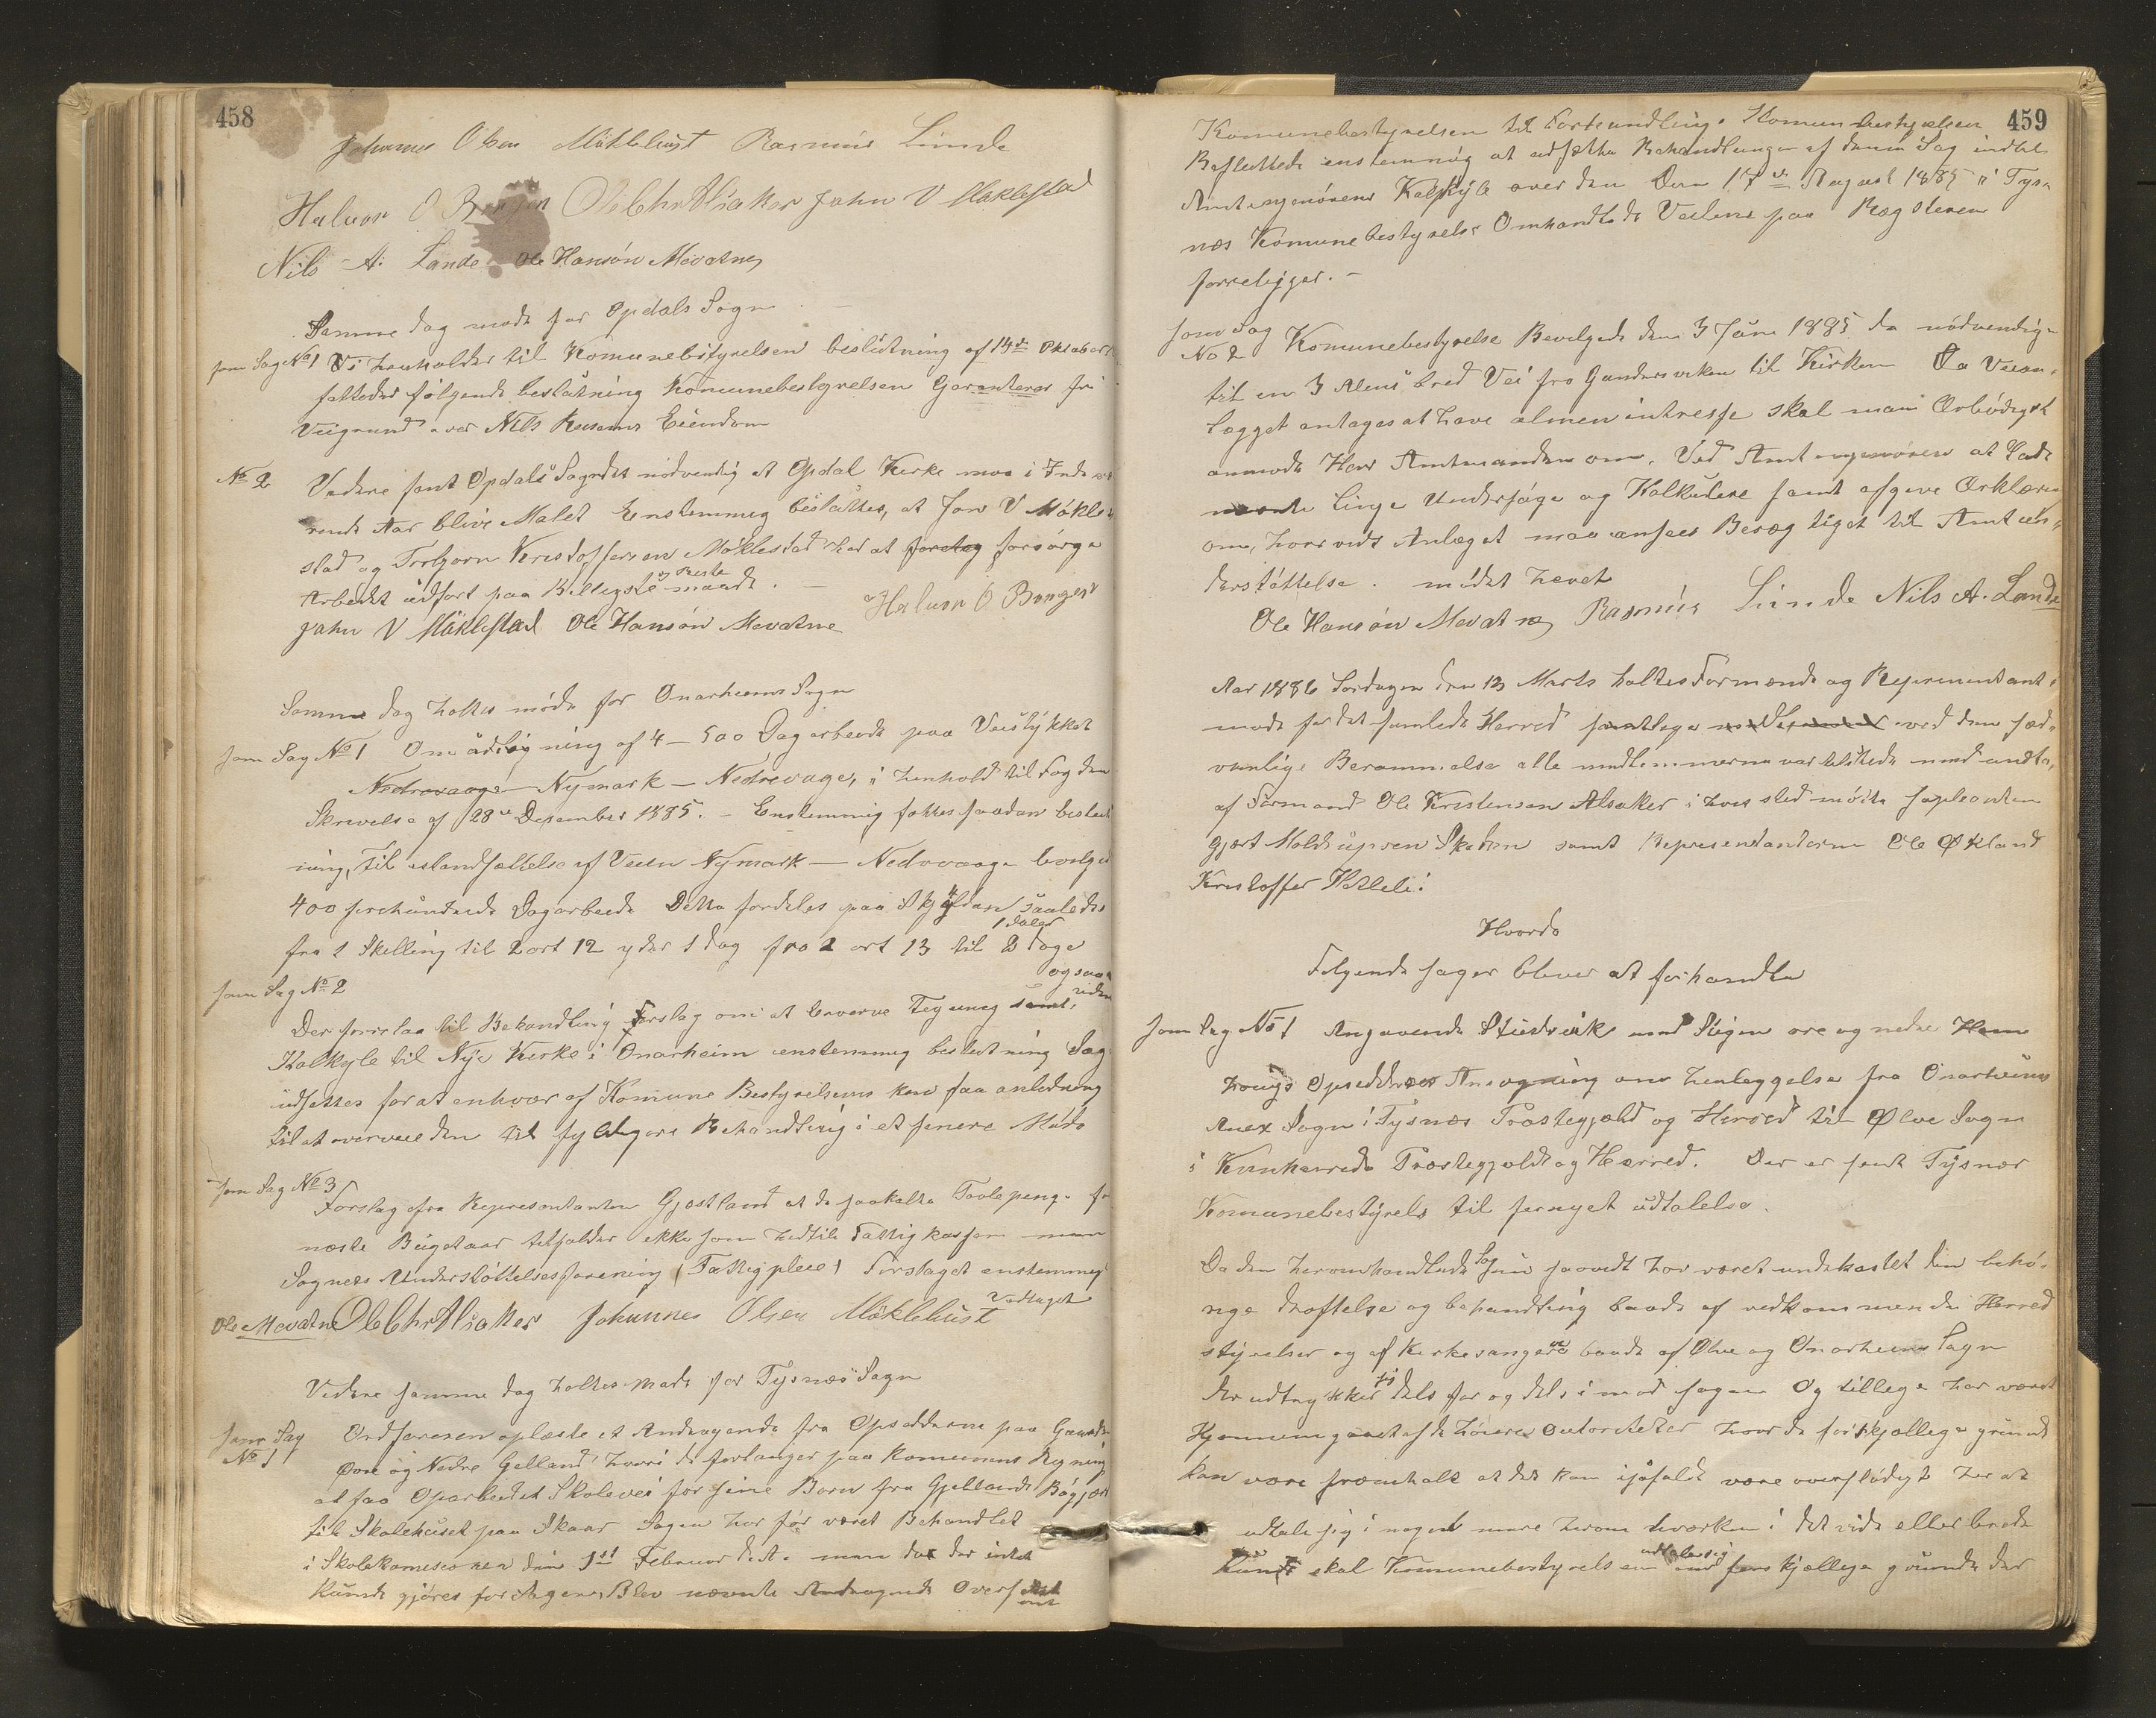 458
Johannes Olsen Møklebust Rasmus Linde
Halvor O Ole Chr Alsaker John V Møklestad
Nils A. Lande Ole Hansøn Mevatne
Samme dag møde for Opdals Sogn
som Sag No 1 Vi henholder til Komunebestyrelsen beslutning af 14de Oktober
fattedes følgende beslutning Komunebestyrelsen Garanteres fri
Veigrund over Nils Eiendom
No 2 Videre fant Opdals Sogn det nødvendig at Opdal Kirke maa i Inde væ
rende Aar blive Malet Enstemmig besluttes, at Jon V Møkle
stad og Torbjørn Kristoffersen Møklestad har at foretag forsørge
Arbeidet udført paa Billigste og Beste maade. —
John V Møklestad Ole Hansøn Mevatne Halvor O
Samme dag holtes møde for Onarheims Sogn
som Sag No 1 Om udligning af 4 – 500 Dagarbeide paa Veistykket
Nedrevaage Nymark — Nedrevaage, i henhold til Fogden
Skrivelse af 28de Desember 1885. – Enstemmig fattes saadan beslut
ning, Til istandsættelse af Veien Nymark — Nedrevaage bevilges
400 firehundrede Dagarbeide Dette fordeles paa Skylden saaledes
fra 1 Skelling til 2 ort 12 yder 1 dag fra 2 ort 13 til 1 daler 2 dage
og saa videre
som Sag No 2
Der forelaa til Behandling Forslag om at erverve Tegning samt
Kalkyle til Nye Kirke i Onarheim enstemmig beslutning Sag
udsettes for at enhver af Komune Bestyrelsens kan faa anledning
til at overveie den til fyldigere Behandling i et senere Møde
som Sag No 3
Forslag fra Representanten Gjøstland at de saakalte Tavlepenge for
næste Bugetaar tilfalder ikke som hidtil Fattigkassen men
Sognets Understøttelsesforening (Fattigpleie) Forslaget enstemmig
Vedtaget
Ole Mevatne Ole Chr Alsaker Johannes Olsen Møklebust
Videre samme dag holtes Møde for Tysnes Sogn
som Sag No 1 Ordføreren oplæste et Andragende fra Opsidderne paa
Øvre og Nedre Gjelland hvori de forlanger paa Komunens Regning
at faa Oparbeidet Skolevei for sine Børn fra Gjellands
til Skolehuset paa Skaar Sagen har før været Behandlet
i Skolekomisionen den 1ste Februar d.A. men da der intet
kunde gjøres for Sagen, Blev nævnte Andragende Oversendt
459
Komunebestyrelsen til Forhandling. Komunebestyrelsen
Besluttede enstemmig at udsætte Behandlingen af denne Sag indtil
Amtsingeniørens Kalkyle over den Den 17de August 1885 i Tys
nes Komunebestyrelse Omhandlede Veilinie paa Røgsteren
forreligger. –
som Sag No 2 Komunebestyrelse Bevilgede den 3 Juni 1885 da nødvendige
til en 3 Alens bred Vei fra Gundersviken til Kirken Da Veian
lægget antages at have almen intresse skal man Ærbødigst
anmode Herr Amtmanden om, Ved Amtingeniøren at lade
nevnte Linje Undersøge og Kalkulere samt afgive Erklæring
om, hvorvidt Anlæget maa ansees Berægtiget til Amtsun
derstøttelse. mødet hævet
Ole Hansøn Mevatne Rasmus Linde Nils A. Lande
Aar 1886 Lørdagen den 13 Marts holtes Formands og Representant
møde for det samlede Herred ved den sæd
vanlige Berammelse alle medlemmerne var tilstede med undta
af Formand Ole Kristensen Alsaker i hvis sted mødte supleanten
Gjert Skaten samt Representanterne Ole Økland
Kristoffer Hetleli.
Hvorda
Følgende sager blever at forhandle
som Sag No 1 Angaaende Stuedvik med Stigen øre og nedre
Opsidderes Ansøgning om henlæggelse fra Onarheims
Anex Sogn i Tysnæs Præstegjæld og Herred til Ølve Sogn
i Kvinherreds Præstegjæld og Herred. Der er sent Tysnæs
Komunebestyrels til fornyet udtalelse.
Da den heromhandlede Sag nu saavidt har været underkastet den behø
rige drøftelse og behandling baade af vedkommende Herred
styrelser og af Kirkesangere baade af Ølve og Onarheims Sogn
der udtrykker sig dels for og dels imod sagen Og tillige har været
Gjennemgaaet af de høiere Outoriteter hvor de forskjellige grunde
kan være fremholt at det kan isåfald være overflødigt her at
udtale sig i noget mere herom hverken i det vide eller brede
Kun skal Komunebestyrelsen udtale sig med forskjellige grunde der